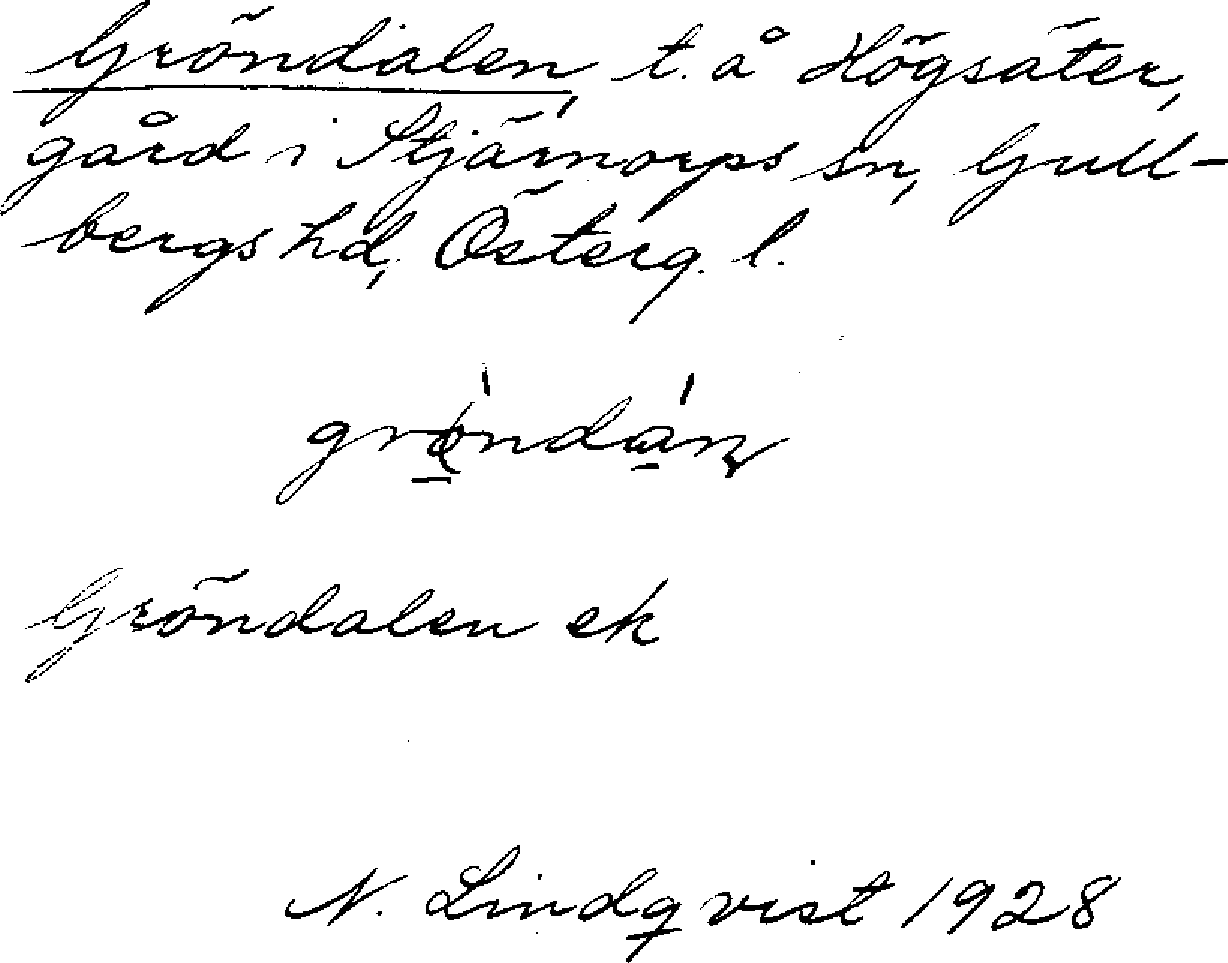 Gröndalen, t. å Högsäter,
gård i Stjärnorps sn, Gull-
bergs hd, Österg. l.
Gröndalen ek
N. Lindqvist 1928